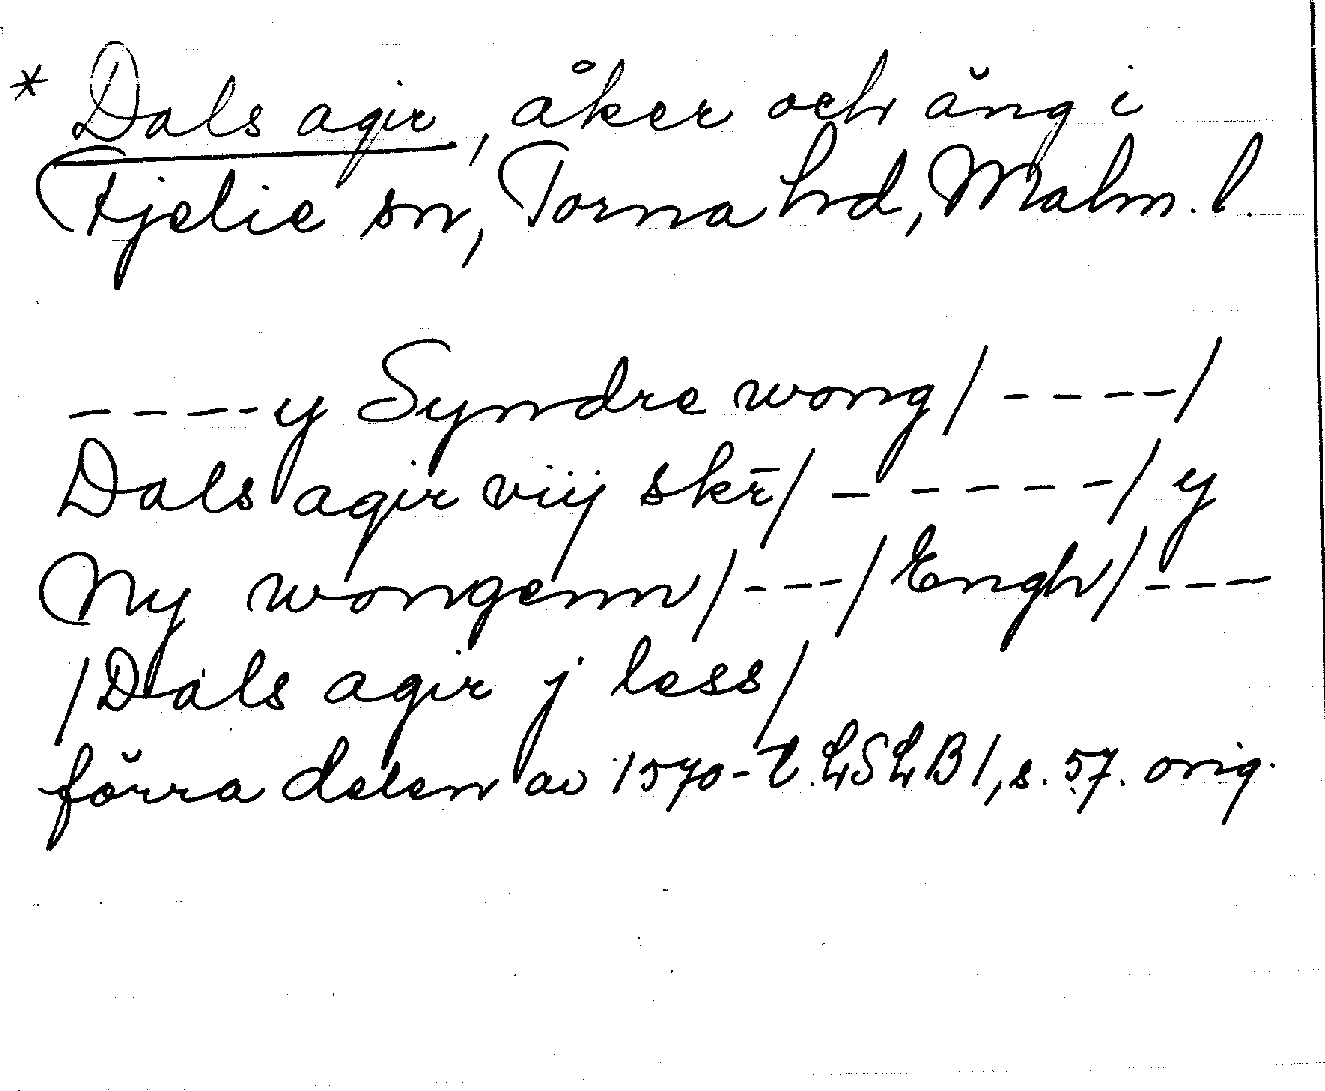 * Dals agir, åker och äng i
Fjelie sn, Torna hd, Malm. l.
----y Syndre wong/----/
Dals agir viij skr̄/------/y
Ny wongenn/---/Engh/---
/Dals agir j less/
förra delen av 1570-t. LSLB1, s. 57. orig.